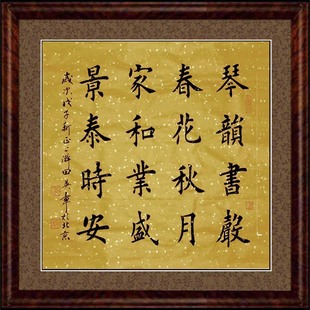 琴韻書聲
春花秋月
家和業盛
景泰時安
歲次戊子新正上澣田英章於北京